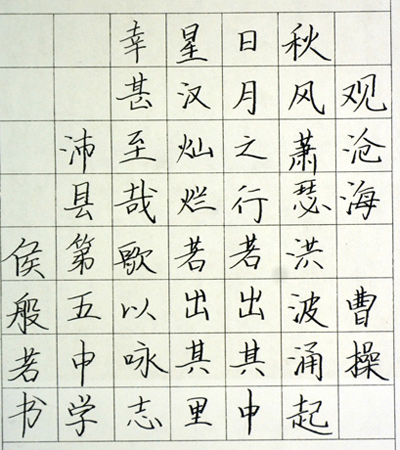 观沧海 曹操
秋风萧瑟洪波涌起
日月之行若出其中
星汉灿烂若出其里
幸甚至哉歌以咏志
沛县第五中学
侯般若书